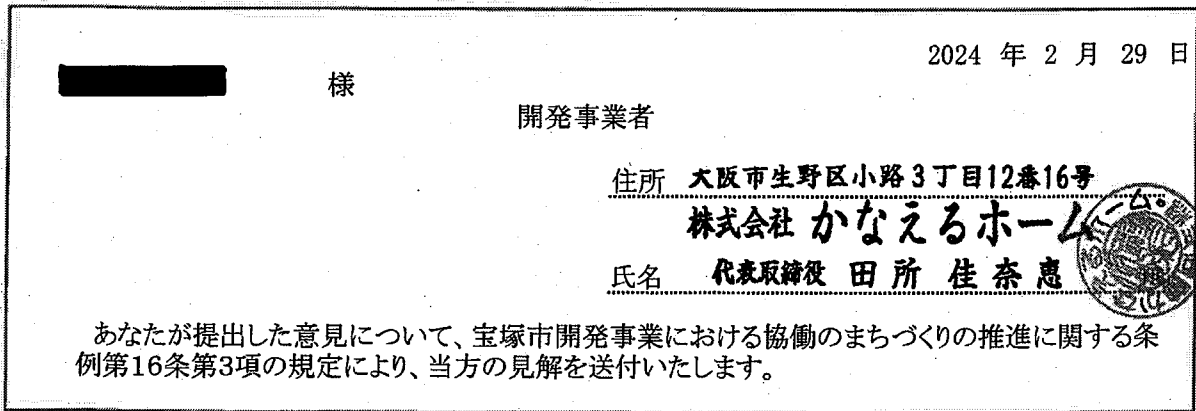 2024 年 2 月 29 日
様
開発事業者
住所 大阪市生野区小路3丁目12番16号
株式会社 かなえるホーム
氏名 代表取締役 田所 佳奈恵
あなたが提出した意見について、宝塚市開発事業における協働のまちづくりの推進に関する条
例第16条第3項の規定により、当方の見解を送付いたします。